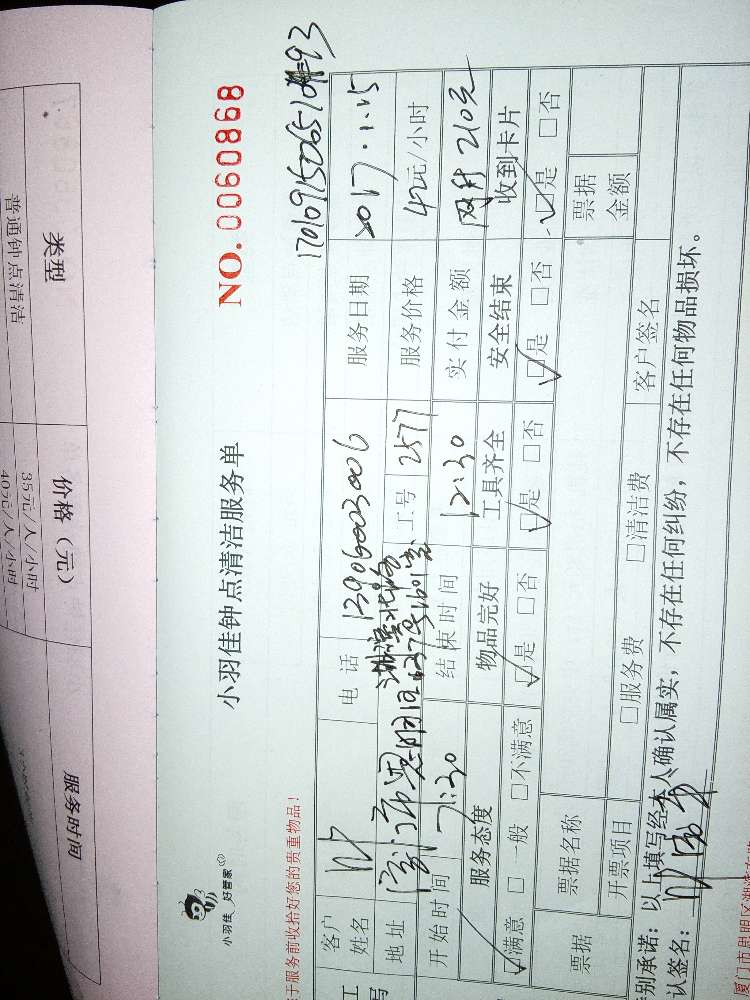 类型
价格（元）
服务时间
普通钟点清洁
35元/人/小时
40元/人/小时
NO. 0060868
小羽佳 好管家
小羽佳钟点清洁服务单
于服务前收拾好您的贵重物品！
客户姓名
电话 13906003006
服务日期 2017.1.15
地址 厦门市思明区
工号 2577
服务价格 42元/小时
开始时间 7:30
结束时间 12:30
实付金额 210元
服务态度 物品完好 工具齐全 安全结束 收到卡片
☑满意 □一般 □不满意 ☑是 □否 ☑是 □否 ☑是 □否 ☑是 □否
票据 票据名称 票据金额
开票项目 □服务费 □清洁费 客户签名
别承诺：以上填写经本人确认属实，不存在任何纠纷，不存在任何物品损坏。
认签名：
厦门市思明区湖滨